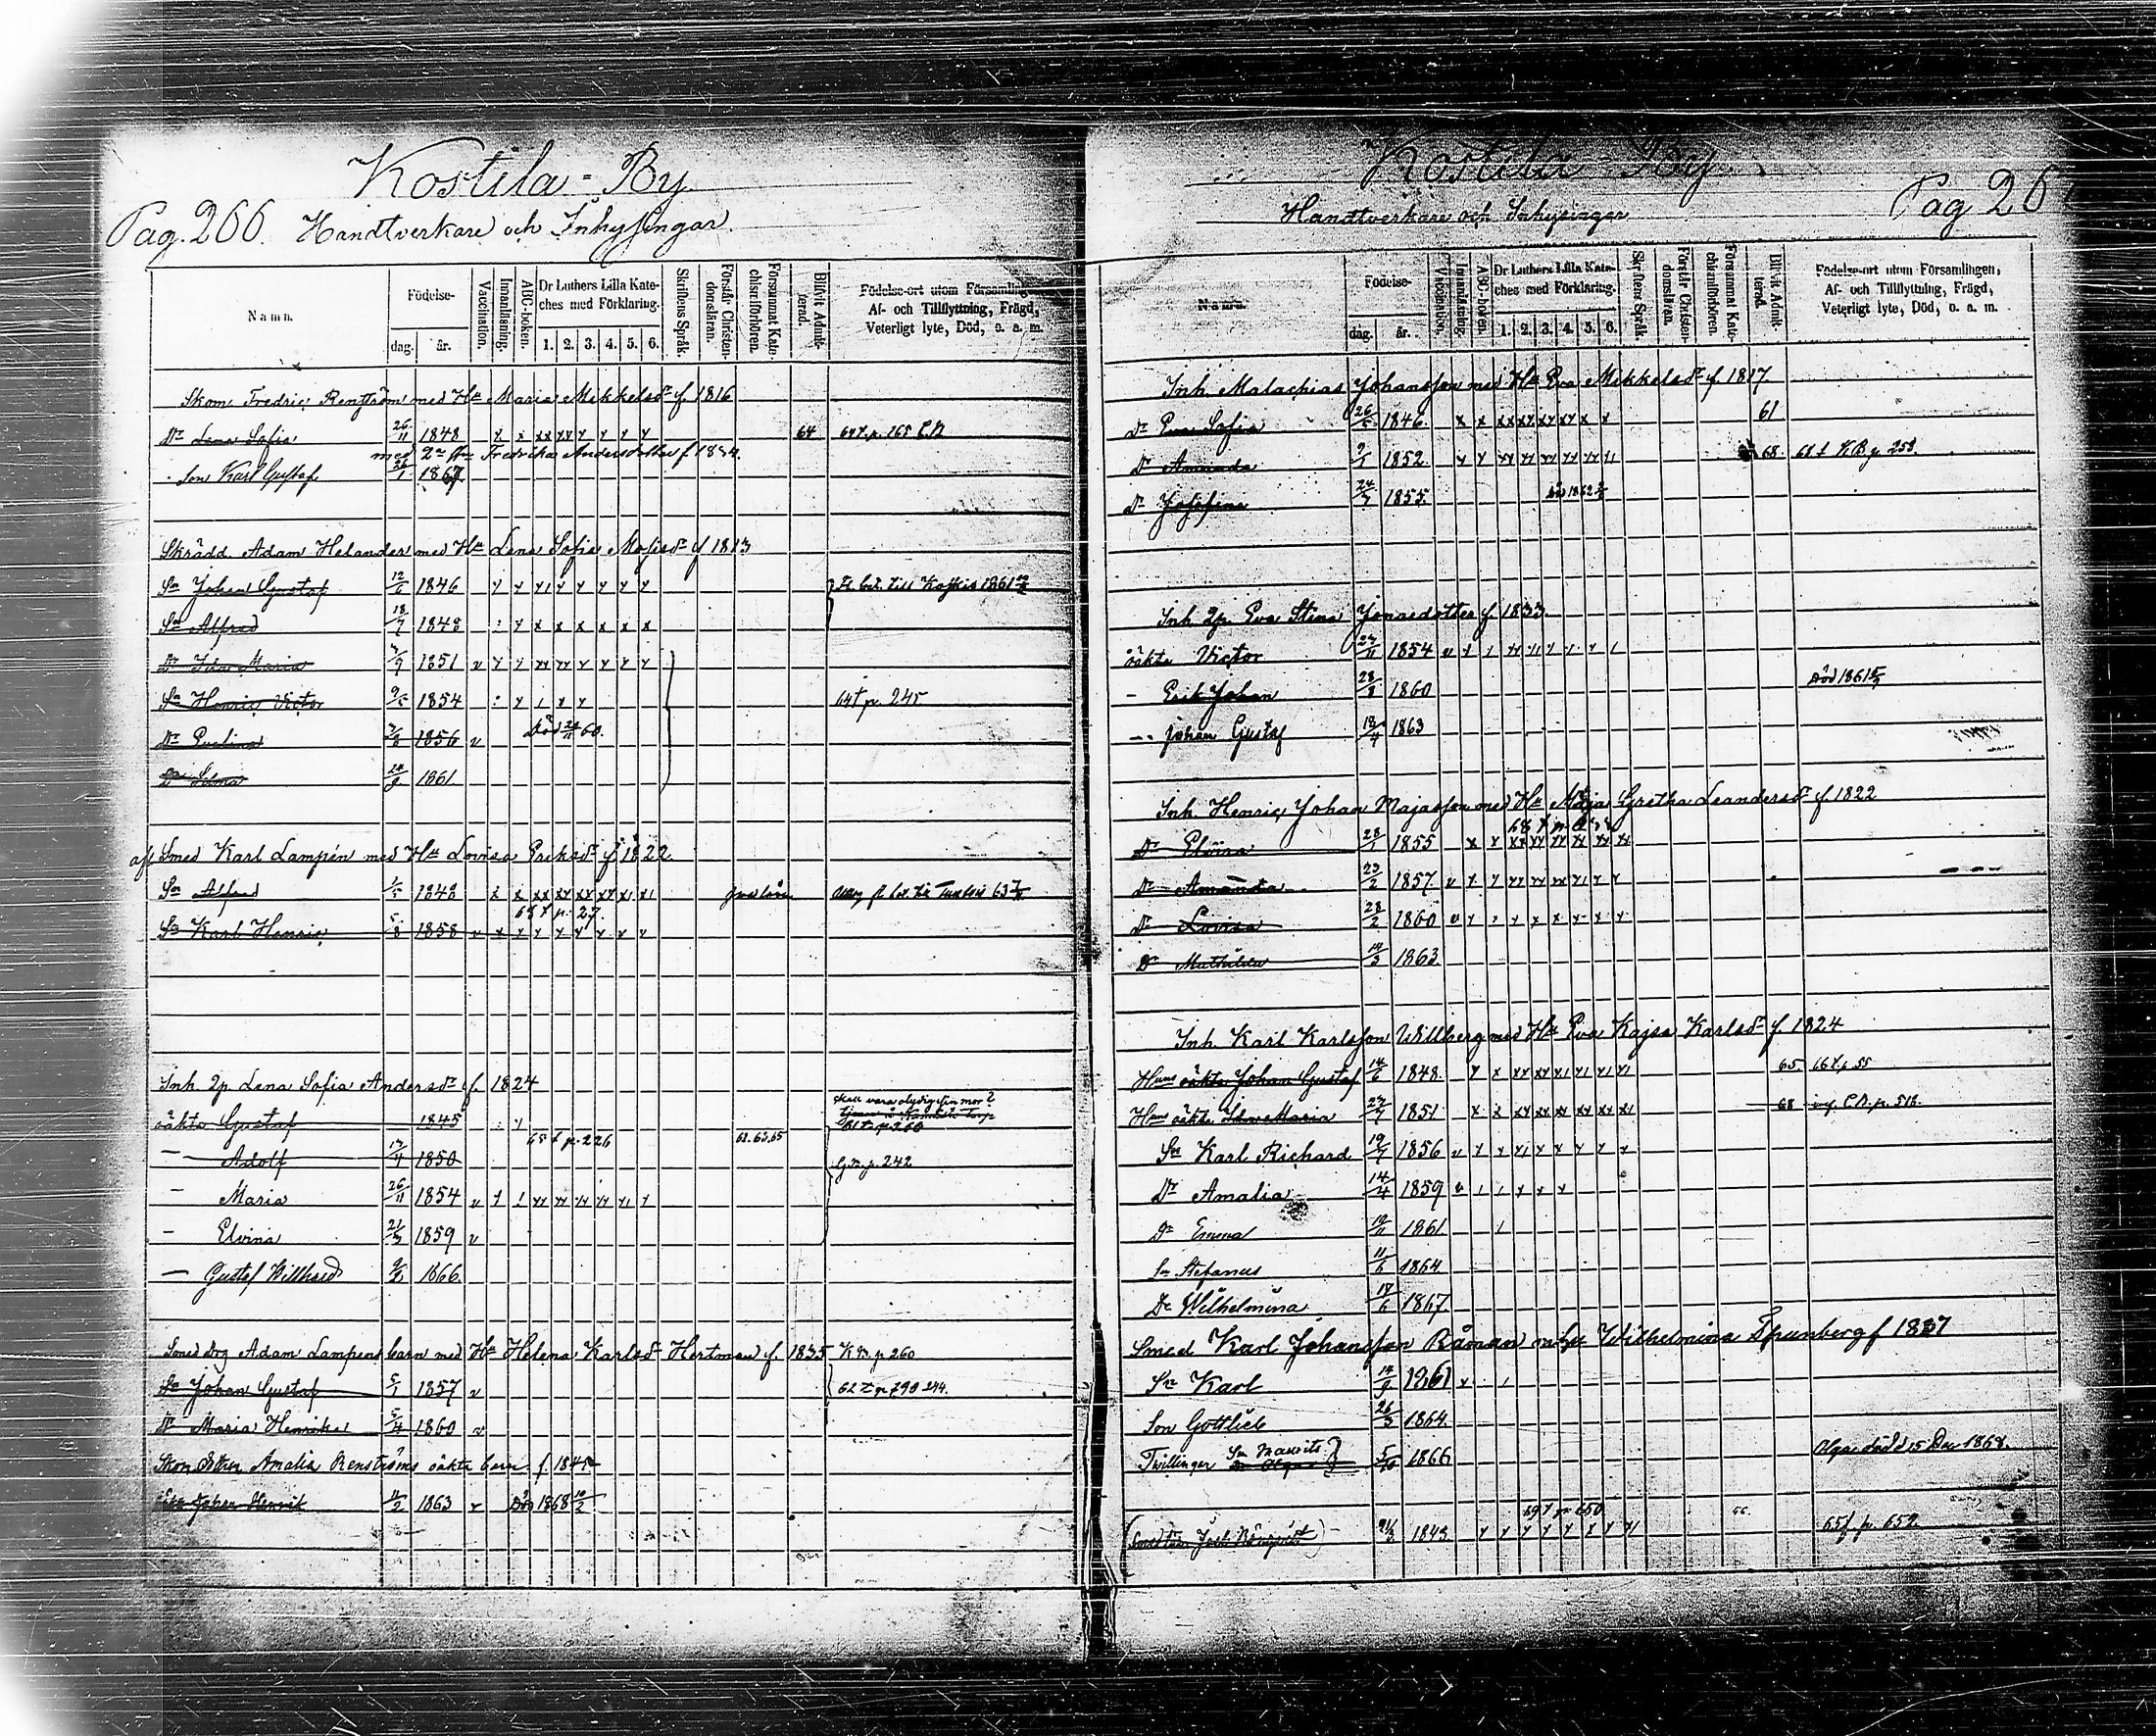 Kostila - By
Pag. 266. Handtverkare och Inhysingar.
Namn.
Födelse-
dag. år.
Vaccination.
Innanläsning.
ABC-boken.
Dr Luthers Lilla Kate-
ches med Förklaring.
1. 2. 3. 4. 5. 6.
Skriftens Språk.
Förstår Christen-
domsläran.
Försummat Kate-
chismiförhören.
Blifvit Admit-
terad.
Födelse-ort utom Församlingen,
Af- och Tillflyttning, Frägd,
Veterligt lyte, Död, o. a. m.
Skom. Fredric Renström med Hu Maria Mikkelsdr f. 1816
Dr Lena Sofia 26/11 1848 64 64 t. p. 265 C.B
med 2n Hu Fredrika Andersdotter f 1834.
Son Karl Gustaf 26/1 1867
Skrädd. Adam Helander med Hu Lena Sofia Mosisdr f 1813
Sn Johan Gustaf 12/6 1846 Fl. bet. till Koskis 1861
Sn Alfred 18/7 1848
Dr Ida Maria 1851
Sn Henric Victor 1854 64 t p. 245
Dr Evelina 1856 Död 60.
Dr Selma 24/9 1861
Smed Karl Lampén med Hu Lovisa Eriksdr f 1822
Sn Alfred 1848
68 t p. 27.
Sn Karl Henric 5/8 1858
Inh. 2p. Lena Sofia Andersdr f. 1824
oäkta Gustaf 1845 61 t. p. 260
65 t p. 226 62. 63. 65
- Adolf 1850 p. 242
- Maria 26/11 1854
- Elvina 21/3 1859
- Gustaf Willhard 1866
Smed Adam Lampens barn med Hu Helena Karlsdr Hertman f. 1835 K.B. p. 260
Sn Johan Gustaf 5/1 1857 62 t p 290 244.
Dr Maria Henrika 5/4 1860
Amalia Renströms oäkta barn f. 1845
Johan Henrik 11/2 1863 Död 1868
Kostila - By
Pag 26
Handtverkare och Inhysingar
Namn.
Födelse-
dag. år.
Vaccination.
Innanläsning.
ABC-boken.
Dr Luthers Lilla Kate-
ches med Förklaring.
1. 2. 3. 4. 5. 6.
Skriftens Språk.
Förstår Christen-
domsläran.
Försummat Kate-
chismiförhören.
Blifvit Admit-
terad.
Födelse-ort utom Församlingen,
Af- och Tillflyttning, Frägd,
Veterligt lyte, Död, o. a. m.
Inh. Malachias Johansson med Hu Eva Mikkelsdr f. 1817
Dr Eva Sofia 26/5 1846 61
Dr Amanda 1852 68 68 t K.B p. 253.
Dr Josefina 24/7 1855 Död 1862
Inh. 2p. Eva Stina Jonasdotter f. 1833.
oäkta Victor 1854
- Erik Johan 28/8 1860 Död 1861
- Johan Gustaf 1863
Inh. Henric Johan Majasson med Hu Maja Gretha Leandersdr f. 1822
Dr Elvira 28/1 1855
Dr Amanda 23/2 1857
Dr Lovisa 28/2 1860
Dr Mathilda 1863
Inh. Karl Karlsson Willberg med Hu Eva Kajsa Karlsdr f. 1824
Hans oäkta Johan Gustaf 14/6 1848 65 66 t. p 55
Hans oäkta Maria 1851 68 C.B. p. 518.
Sn Karl Richard 19/7 1856
Dr Amalia 14/4 1859
Dr Emma 1861
Sn Stefanus 11/6 1864
Dr Wilhelmina 1867
Smed Karl Johansson Råman Wilhelmina f 1837
Sn Karl 14/9 1861
Son Gottlieb 26/3 1864
Twillingar Sn Maurits 5/10 1866 död 15 Dec 1868.
69 t p 650
1843 66 65 t p. 659.